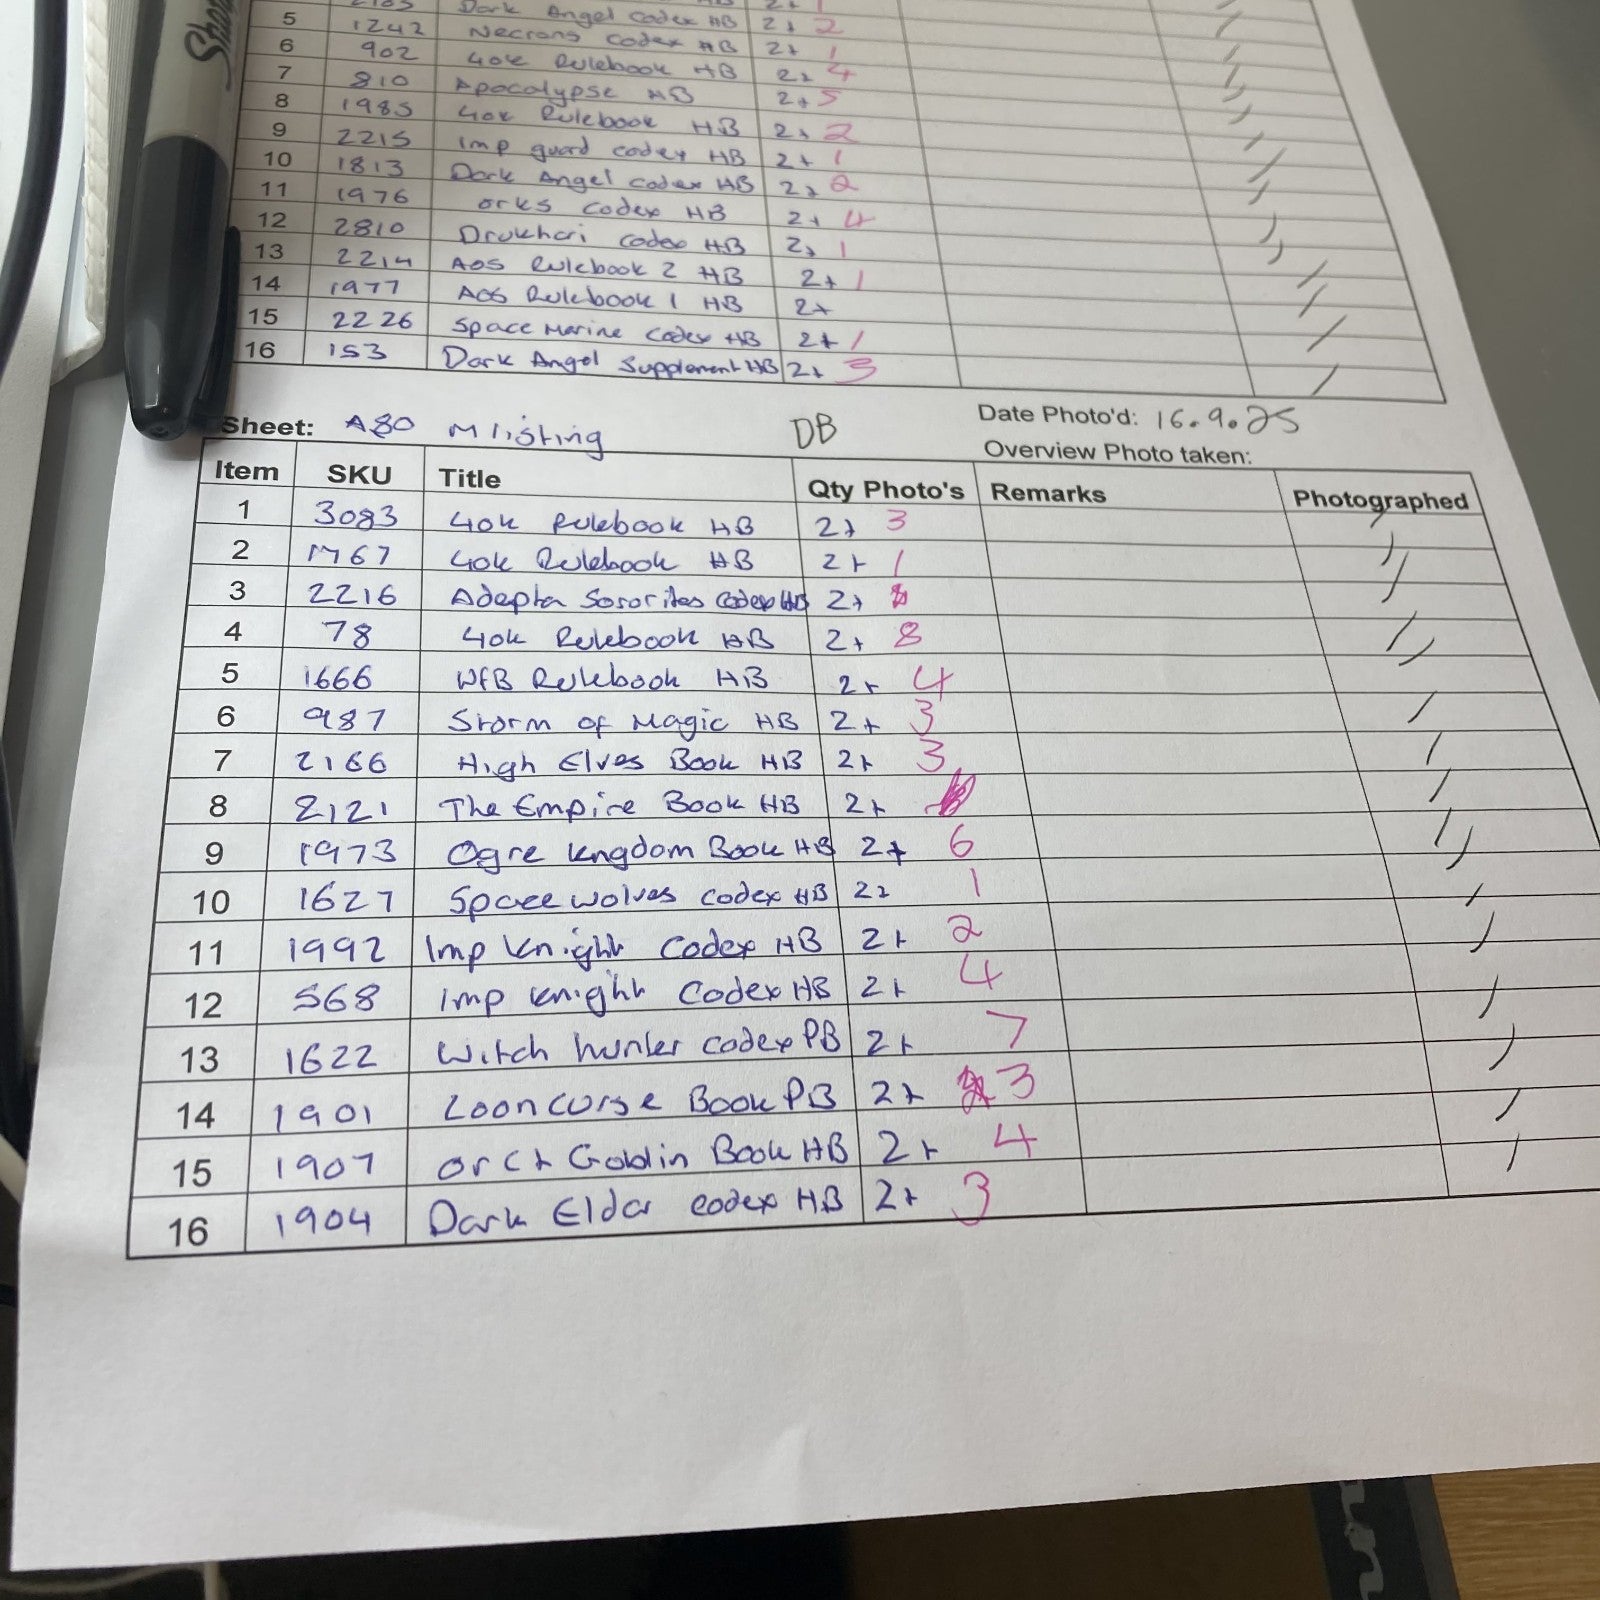 Dark Angel Codex HB 2+ 1
5 1242 Necrons Codex HB 2+ 2
6 902 40k Rulebook HB 2+ 1
7 810 Apocalypse HB 2+ 4
8 1985 40k Rulebook HB 2+ 5
9 2215 Imp guard codex HB 2+ 2
10 1813 Dark Angel codex HB 2+ 1
11 1976 orks codex HB 2+ 2
12 2810 Drukhari codex HB 2+ 4
13 2214 AOS Rulebook 2 HB 2+ 1
14 1977 AOS Rulebook 1 HB 2+ 1
15 2226 Space Marine Codex HB 2+ 1
16 153 Dark Angel Supplement HB 2+ 3
Sheet: A80 M listing DB Date Photo'd: 16.9.25
Overview Photo taken:
Item SKU Title Qty Photo's Remarks Photographed
1 3083 40k Rulebook HB 2+ 3
2 1767 40k Rulebook HB 2+ 1
3 2216 Adepta Sororitas Codex HB 2+
4 78 40k Rulebook HB 2+ 8
5 1666 WFB Rulebook HB 2+ 4
6 987 Storm of Magic HB 2+ 3
7 2166 High Elves Book HB 2+ 3
8 2121 The Empire Book HB 2+
9 1973 Ogre kngdom Book HB 2+ 6
10 1627 Space wolves codex HB 2+ 1
11 1992 Imp Knight Codex HB 2+ 2
12 568 Imp knight Codex HB 2+ 4
13 1622 Witch hunter codex PB 2+ 7
14 1901 Looncurse Book PB 2+ 3
15 1907 Orc + Goblin Book HB 2+ 4
16 1904 Dark Eldar codex HB 2+ 3